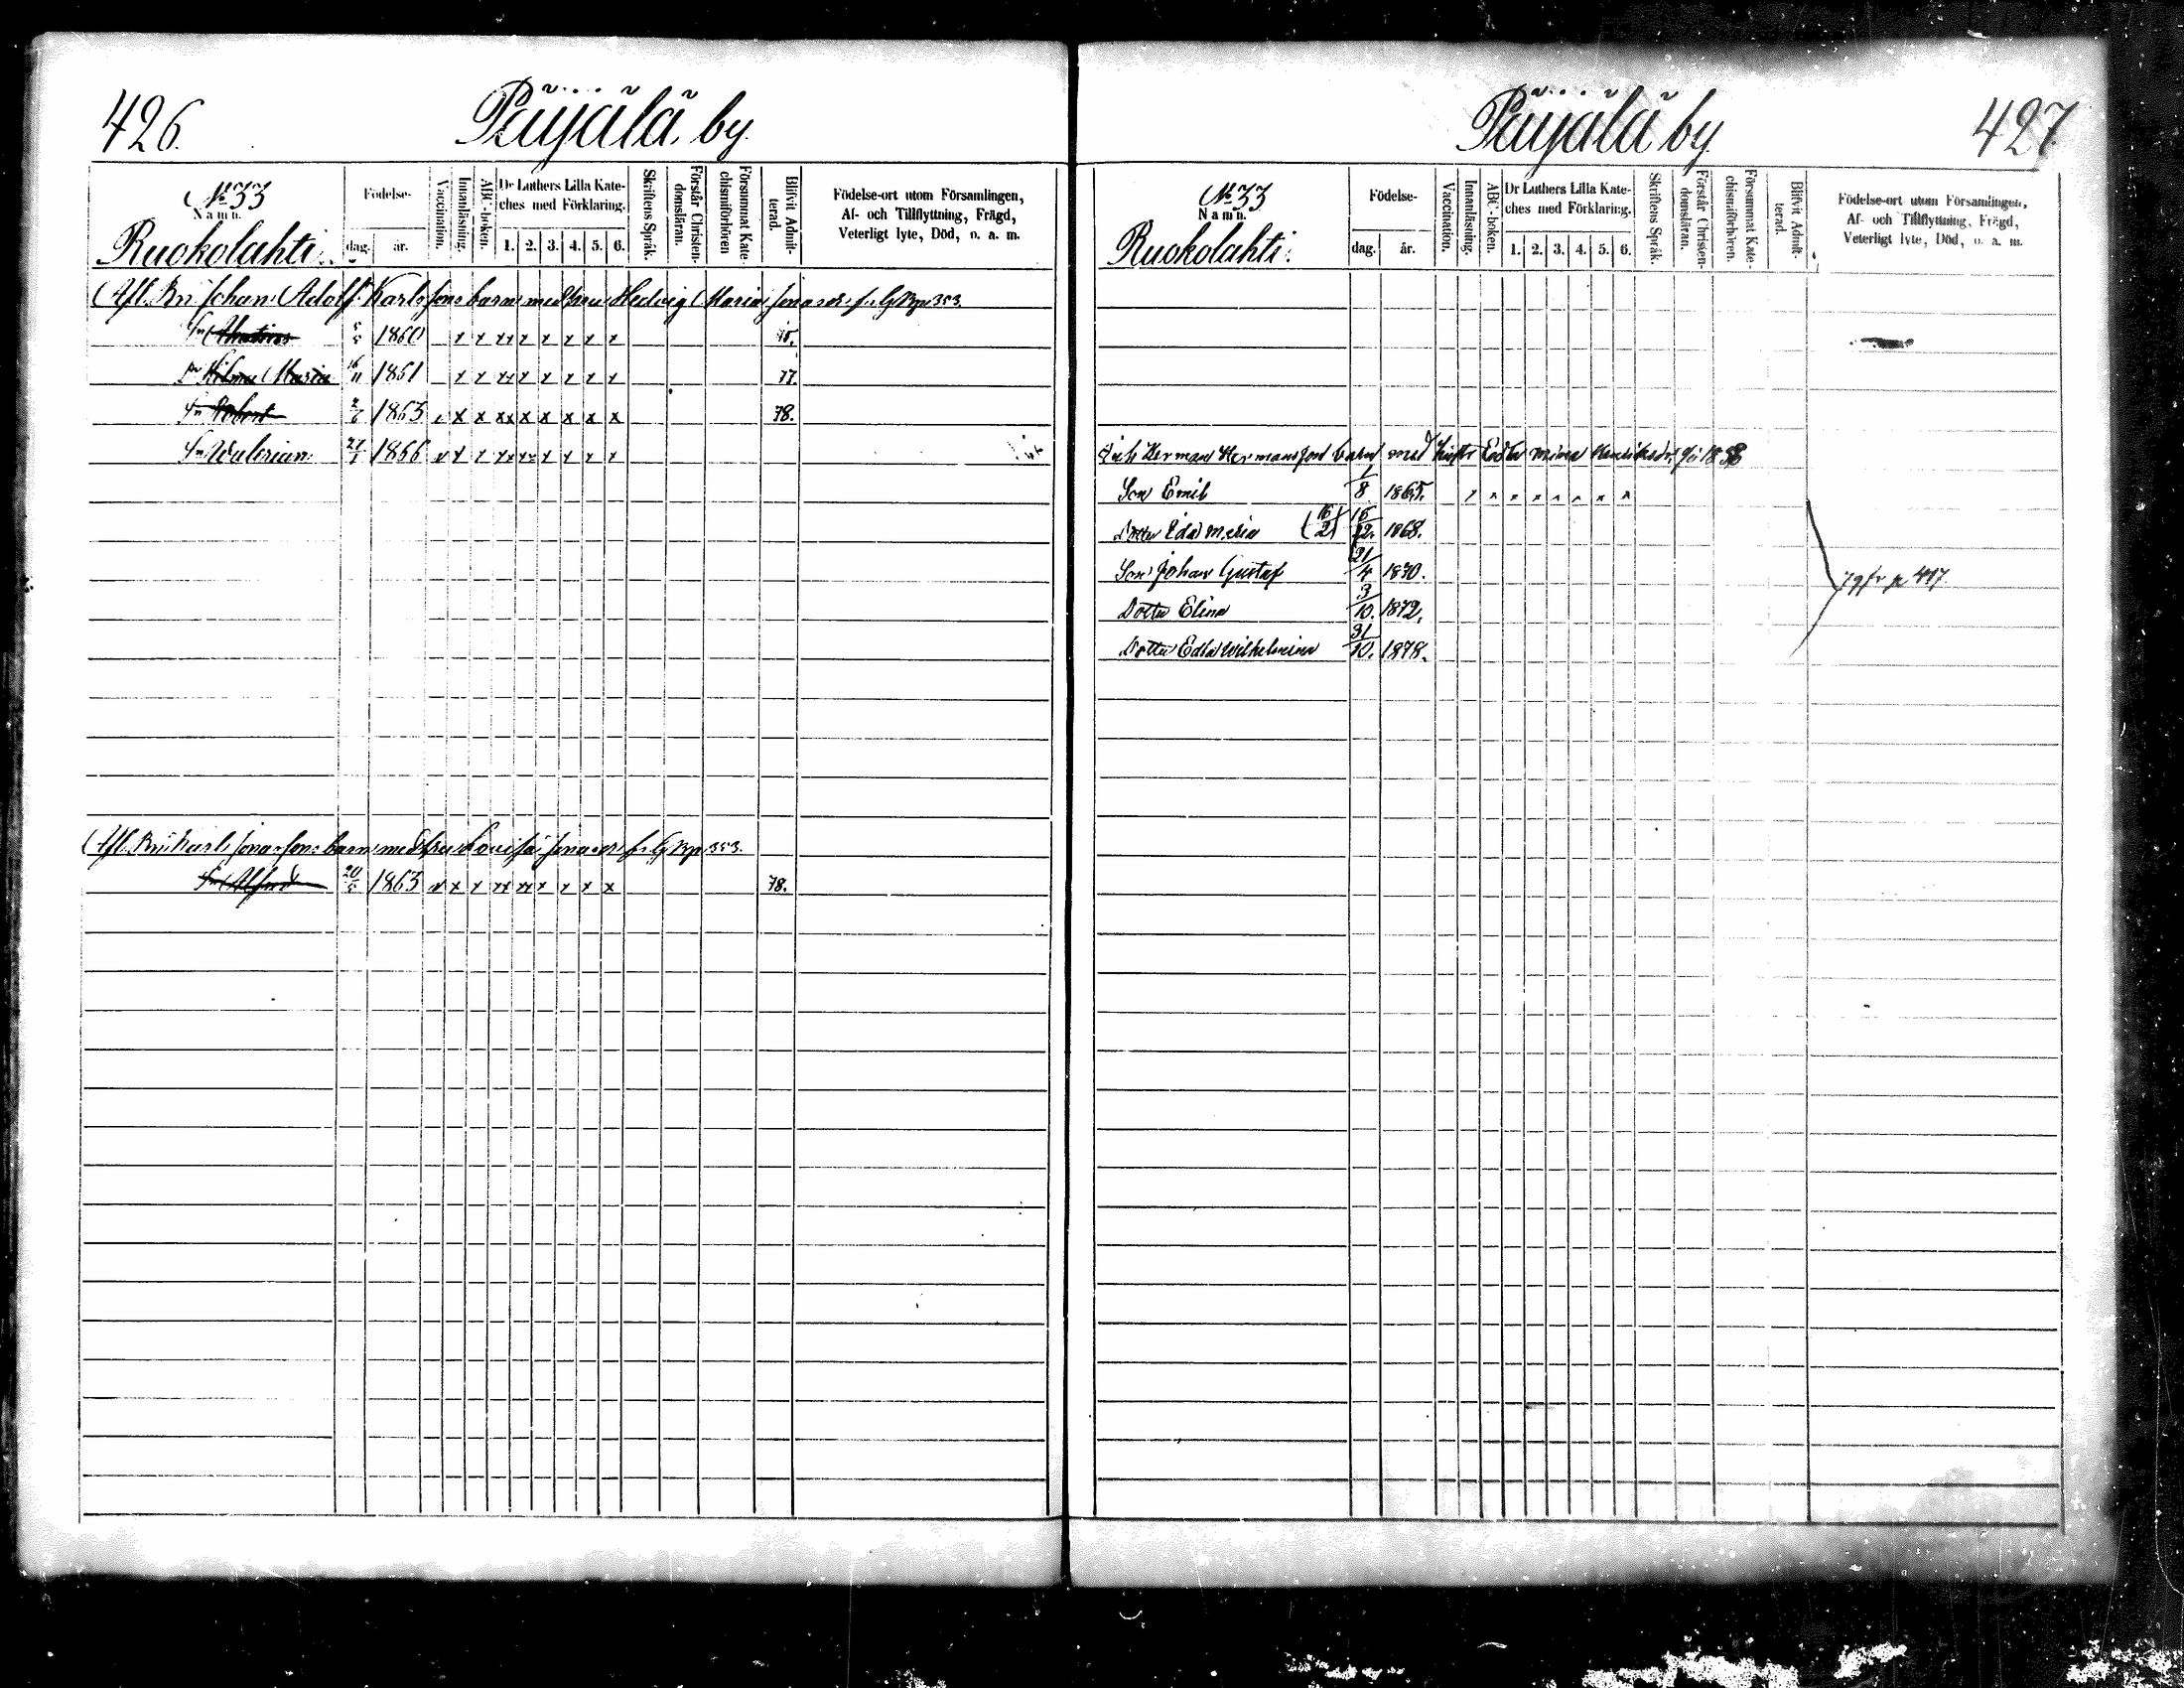 426.
Päijälä by
№ 33
Namn.
Ruokolahti.
Födelse-
dag.
år.
Vaccination.
Innanläsning.
ABC-boken.
Dr Luthers Lilla Kate-
ches med Förklaring.
1. 2. 3. 4. 5. 6.
Skriftens Språk.
Förstår Christen-
domsläran.
Försummat Kate-
chismiförhören
Blifvit Admit-
terad.
Födelse-ort utom Församlingen,
Af- och Tillflyttning, Frägd,
Veterligt lyte, Död, o. a. m.
Afl. Johan Adolf Karlsson barn med Hedvig Maria 353.
1860 x x xx x x x x x
Dr Hilma Maria 16/11 1861 x x xx x x x x x 77
Sn Robert 1863 v x x xx x x x x x 78.
Sn Valerian 1866 v x x xx xx x x x x
Afl. Karl Jonasson barn med Lovisa 353.
Sn Alfred 1863 v x x xx xx x x x x 78.
Päijälä by
427
№ 33
Namn.
Ruokolahti.
Födelse-
dag.
år.
Vaccination.
Innanläsning.
ABC-boken.
Dr Luthers Lilla Kate-
ches med Förklaring.
1. 2. 3. 4. 5. 6.
Skriftens Språk.
Förstår Christen-
domsläran.
Försummat Kate-
chismiförhören.
Blifvit Admit-
terad.
Födelse-ort utom Församlingen,
Af- och Tillflyttning, Frägd,
Veterligt lyte, Död, o. a. m.
Herman Hermansson barn med Hustr Edla
Son Emil 1/8 1865. x x x x x x x x
Dotter Eda Maria 1868.
Son Johan Gustaf 1870.
p 417
Dotter Elina 3/10. 1872.
Dotter Edla Wilhelmina 31/10. 1878.